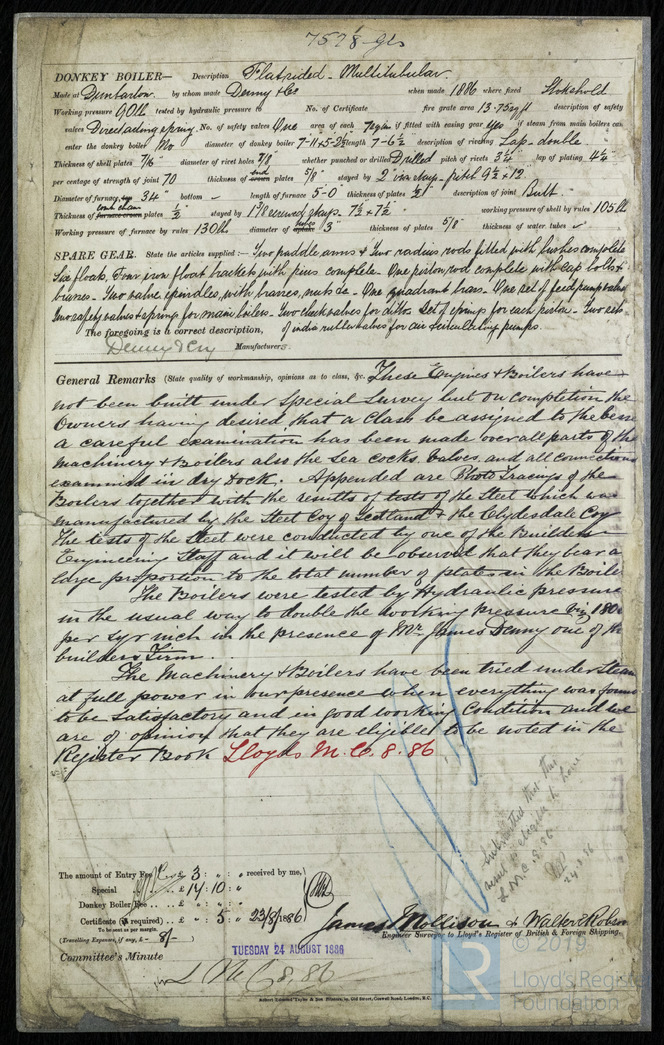 7578 Gls
DONKEY BOILER— Description Flatsided - Multitubular.
Made at Dumbarton by whom made Denny & Co when made 1886 where fixed Stokehold
Working pressure 90 lb tested by hydraulic pressure to No. of Certificate fire grate area 13.75 sq ft description of safety
valves Direct acting spring No. of safety valves One area of each if fitted with easing gear Yes if steam from main boilers can
enter the donkey boiler No diameter of donkey boiler length 7-6½ description of riveting Lap double
Thickness of shell plates 7/16 diameter of rivet holes 7/8 whether punched or drilled Drilled pitch of rivets 3¼ lap of plating 4¼
per centage of strength of joint 70 thickness of end plates 5/8 stayed by 2" iron stays - pitch 9½ × 12
Diameter of furnace, top 34 bottom – length of furnace 5-0 thickness of plates ½ description of joint Butt
Thickness of furnace crown plates ½ stayed by 1 3/8 screwed stays 7½ × 7½ working pressure of shell by rules 105 lb
Working pressure of furnace by rules 130 lb diameter of 3" thickness of plates 5/8 thickness of water tubes
SPARE GEAR. State the articles supplied:— Two paddle arms & Two radius rods fitted with bushes complete
Six floats, Four iron float brackets with pins complete. One piston rod complete with cap bolts &
brasses. Two valve spindles, with brasses, nuts &c - One quadrant brass. One set of feed pump valves
Two safety valves & springs for main boilers. Two check valves for ditto. Set of springs for each piston. Two sets
The foregoing is a correct description, of india rubber valves for air & circulating pumps.
Denny & Coy Manufacturers.
General Remarks (State quality of workmanship, opinions as to class, &c. These Engines & Boilers have
not been built under Special Survey but on completion the
Owners having desired that a Class be assigned to the
a careful examination has been made over all parts of the
Machinery & Boilers also the Sea cocks, valves, and all connections
examined in dry dock. Appended are Photo Tracings of the
Boilers together with the results of tests of the Steel which was
manufactured by the Steel Coy of Scotland & the Clydesdale Coy
The tests of the Steel were conducted by one of the Builders
Engineering Staff and it will be observed that they bear a
large proportion to the total number of plates in the Boiler
The Boilers were tested by Hydraulic pressure
in the usual way to double the working pressure viz 180
per sqr inch in the presence of Mr James Denny one of the
builders Firm.
The Machinery & Boilers have been tried under Steam
at full power in our presence when everything was found
to be satisfactory and in good working Condition and we
are of opinion that they are eligible to be noted in the
Register Book Lloyds M.C. 8.86
Submitted that this
vessel is eligible to have
L M C 8.86
24.8.86
The amount of Entry Fee .. £ 3 : " : " received by me,
Special .. £ 14 : 10 : "
Donkey Boiler Fee .. £ : :
Certificate (if required) .. £ " : 5 : " 23/8/1886
To be sent as per margin.
(Travelling Expenses, if any, £ – 8/- )
James Mollison & Walter Robson
Engineer Surveyor to Lloyd's Register of British & Foreign Shipping.
TUESDAY 24 AUGUST 1886
Committee's Minute
L M C 8.86
© 2019
LR
Lloyd's Register
Foundation